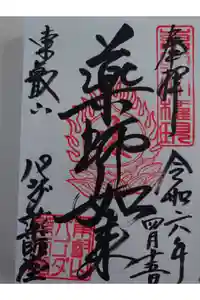 奉拝
令和六年
四月
薬師如来
東叡山
パゴダ薬師堂